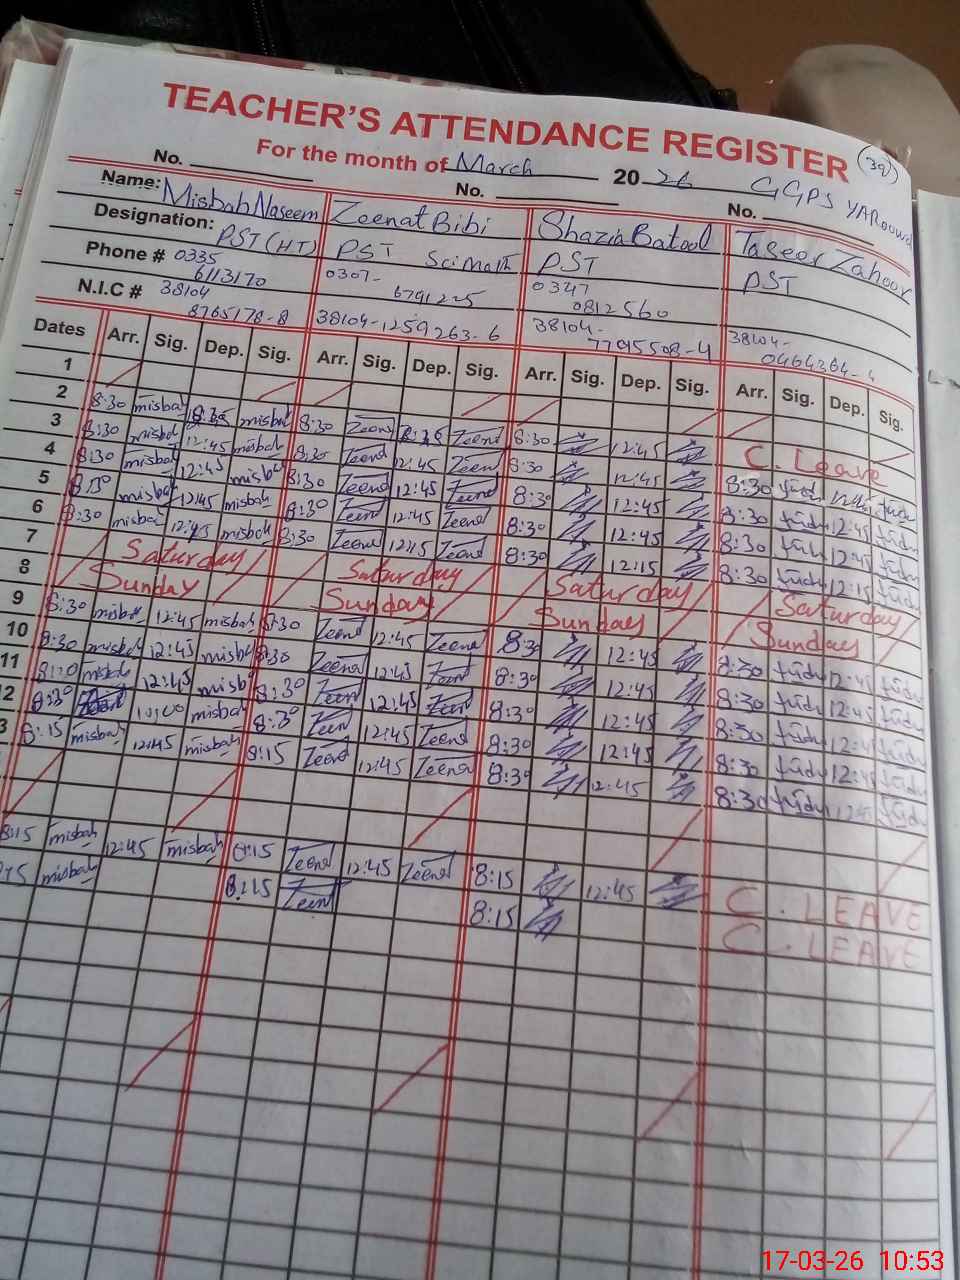 TEACHER'S ATTENDANCE REGISTER (39)
For the month of March 20 26 GGPS YARoowd
No. No. No.
Name: Misbah Naseem Zeenat Bibi Shazia Batool Taseer Zahoor
Designation: PST (HT) PST Sci Math PST PST
Phone # 0335 6113170 0307- 6791225 0347 0812560
N.I.C # 38104 8765178-8 38104-1259263-6 38104- 7795508-4 38104- 0464264-
Dates Arr. Sig. Dep. Sig. Arr. Sig. Dep. Sig. Arr. Sig. Dep. Sig. Arr. Sig. Dep. Sig.
1
2 8:30 misbah misbah 8:30 Zeenat Zeenat 8:30 12:45 C. Leave
3 8:30 misbah 12:45 misbah 8:30 Zeenat 12:45 Zeenat 8:30 12:45 8:30 12:45
4 8:30 misbah 12:45 misbah 8:30 Zeenat 12:45 Zeenat 8:30 12:45 8:30 12:45
5 8:30 misbah 12:45 misbah 8:30 Zeenat 12:45 Zeenat 8:30 12:45 8:30 12:45
6 8:30 misbah 12:15 misbah 8:30 Zeenat 12:15 Zeenat 8:30 12:15 8:30 12:15
7 Saturday Saturday Saturday Saturday
8 Sunday Sunday Sunday Sunday
9 8:30 misbah 12:45 misbah 8:30 Zeenat 12:45 Zeenat 8:30 12:45 8:30 12:45
10 8:30 misbah 12:45 misbah 8:30 Zeenat 12:45 Zeenat 8:30 12:45 8:30 12:45
11 misbah 12:45 misbah 8:30 Zeenat 12:45 Zeenat 8:30 12:45 8:30 12:45
12 8:30 10:00 misbah 8:30 Zeenat 12:45 Zeenat 8:30 12:45 8:30 12:45
3 8:15 misbah 12:45 misbah 8:15 Zeenat 12:45 Zeenat 8:30 12:45 8:30 12:45
8:15 misbah 12:45 misbah 8:15 Zeenat 12:45 Zeenat 8:15 12:45 C. LEAVE
misbah 8:15 Zeenat 8:15 C. LEAVE
17-03-26 10:53